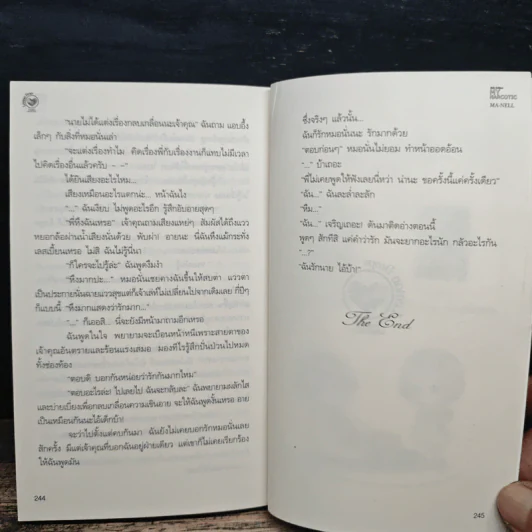 "นายไม่ได้แต่งเรื่องกลบเกลื่อนนะเจ้าคุณ" ฉันถาม แอบอึ้ง
เล็กๆ กับสิ่งที่หมอนั่นเล่า
"จะแต่งเรื่องทำไม คิดเรื่องพี่กับเรื่องงานก็แทบไม่มีเวลา
ไปคิดเรื่องอื่นแล้วครับ - -"
ได้ยินเสียงอะไรไหม...
เสียงเหมือนอะไรแตกน่ะ... หน้าฉันไง
"..." ฉันเงียบ ไม่พูดอะไรอีก รู้สึกอับอายสุดๆ
"พี่หึงฉันเหรอ" เจ้าคุณถามเสียงแหย่ๆ สัมผัสได้ถึงแวว
หยอกล้อผ่านน้ำเสียงนั่นด้วย พับผ่า! อายนะ นี่ฉันหึงแม้กระทั่ง
เลสเบี้ยนเหรอ ไม่สิ ฉันไม่รู้นี่นา
"ก็ใครจะไปรู้ล่ะ" ฉันพูดงึมงำ
"หึงมากปะ..." หมอนั่นเชยคางฉันขึ้นให้สบตา แววตา
เป็นประกายนั่นฉายแววสุขแต่ก็เจ้าเล่ห์ไม่เปลี่ยนไปจากเดิมเลย กี่ปีๆ
ก็แบบนี้ "หึงมากแสดงว่ารักมาก..."
"..." ก็เออสิ... นี่จะยังมีหน้ามาถามอีกเหรอ
ฉันพูดในใจ พยายามจะเบือนหน้าหนีเพราะสายตาของ
เจ้าคุณอันตรายและร้อนแรงเสมอ มองทีไรรู้สึกปั่นป่วนไปหมด
ทั้งช่องท้อง
"ตอบดิ บอกกันหน่อยว่ารักกันมากไหม"
"ตอบอะไรล่ะ! ไปเลยไป ฉันจะกลับละ" ฉันพยายามผลักไส
และบ่ายเบี่ยงเพื่อกลบเกลื่อนความเขินอาย จะให้ฉันพูดงั้นเหรอ อาย
เป็นเหมือนกันนะไอ้เด็กบ้า!
จะว่าไปตั้งแต่คบกันมา ฉันยังไม่เคยบอกรักหมอนั่นเลย
สักครั้ง มีแต่เจ้าคุณที่บอกฉันอยู่ฝ่ายเดียว แต่เขาก็ไม่เคยเรียกร้อง
ให้ฉันพูดมัน
244
NARCOTIC
MA-NELL
ซึ่งจริงๆ แล้วนั้น...
ฉันก็รักหมอนั่นนะ รักมากด้วย
"ตอบก่อนๆ" หมอนั่นไม่ยอม ทำหน้าออดอ้อน
"..." บ้าเถอะ
"พี่ไม่เคยพูดให้ฟังเลยนี่หว่า น่านะ ขอครั้งนี้แค่ครั้งเดียว"
"ฉัน..." ฉันละล่ำละลัก
"หืม..."
"ฉัน..." เจริญเถอะ! ดันมาติดอ่างตอนนี้
พูดๆ สักทีสิ แค่คำว่ารัก มันจะยากอะไรนัก กลัวอะไรกัน
"...?"
"ฉันรักนาย ไอ้บ้า!"
The End
245